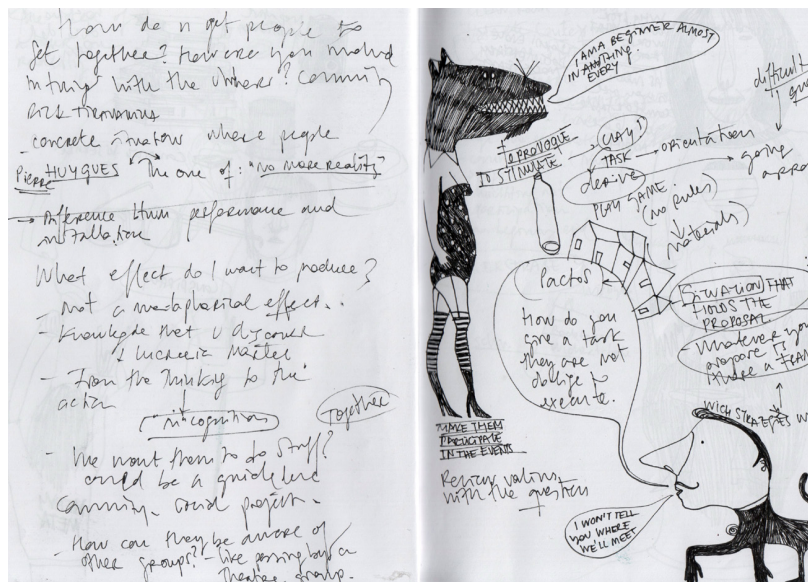 How do u get people to
get together? How are you involved
in things with the others? Community
RICK TIRAVANIJA
concrete situations where people
Pierre HUYGUES the one of: "no more reality"
→ Difference btwn performance and
installation
What effect do I want to produce?
- Not a metaphorical effect..
- Knowledge that u discover
Lucrecia Martel
- From the thinking to the
action
Together
- We want them to do stuff?
could be a guideline
Community. Social project.
- How can they be aware of
other groups? - like passing by a
theatre group.
I AM A BEGINNER ALMOST
IN ANYTHING.
EVERY
difficult
TO PROVOQUE
TO STIMULATE
CLAY!
TASK → orientation
derive
going
PLAY GAME
(no Rules)
materials)
Pactos
How do you
give a task
they are not
oblige to
execute.
SITUATION THAT
HOLDS THE
PROPOSAL
- Whatever you
prepare is
MAKE THEM
PARTICIPATE
IN THE EVENTS
WICH STRATEGIES W
with the question
I WON'T TELL
YOU WHERE
WE'LL MEET